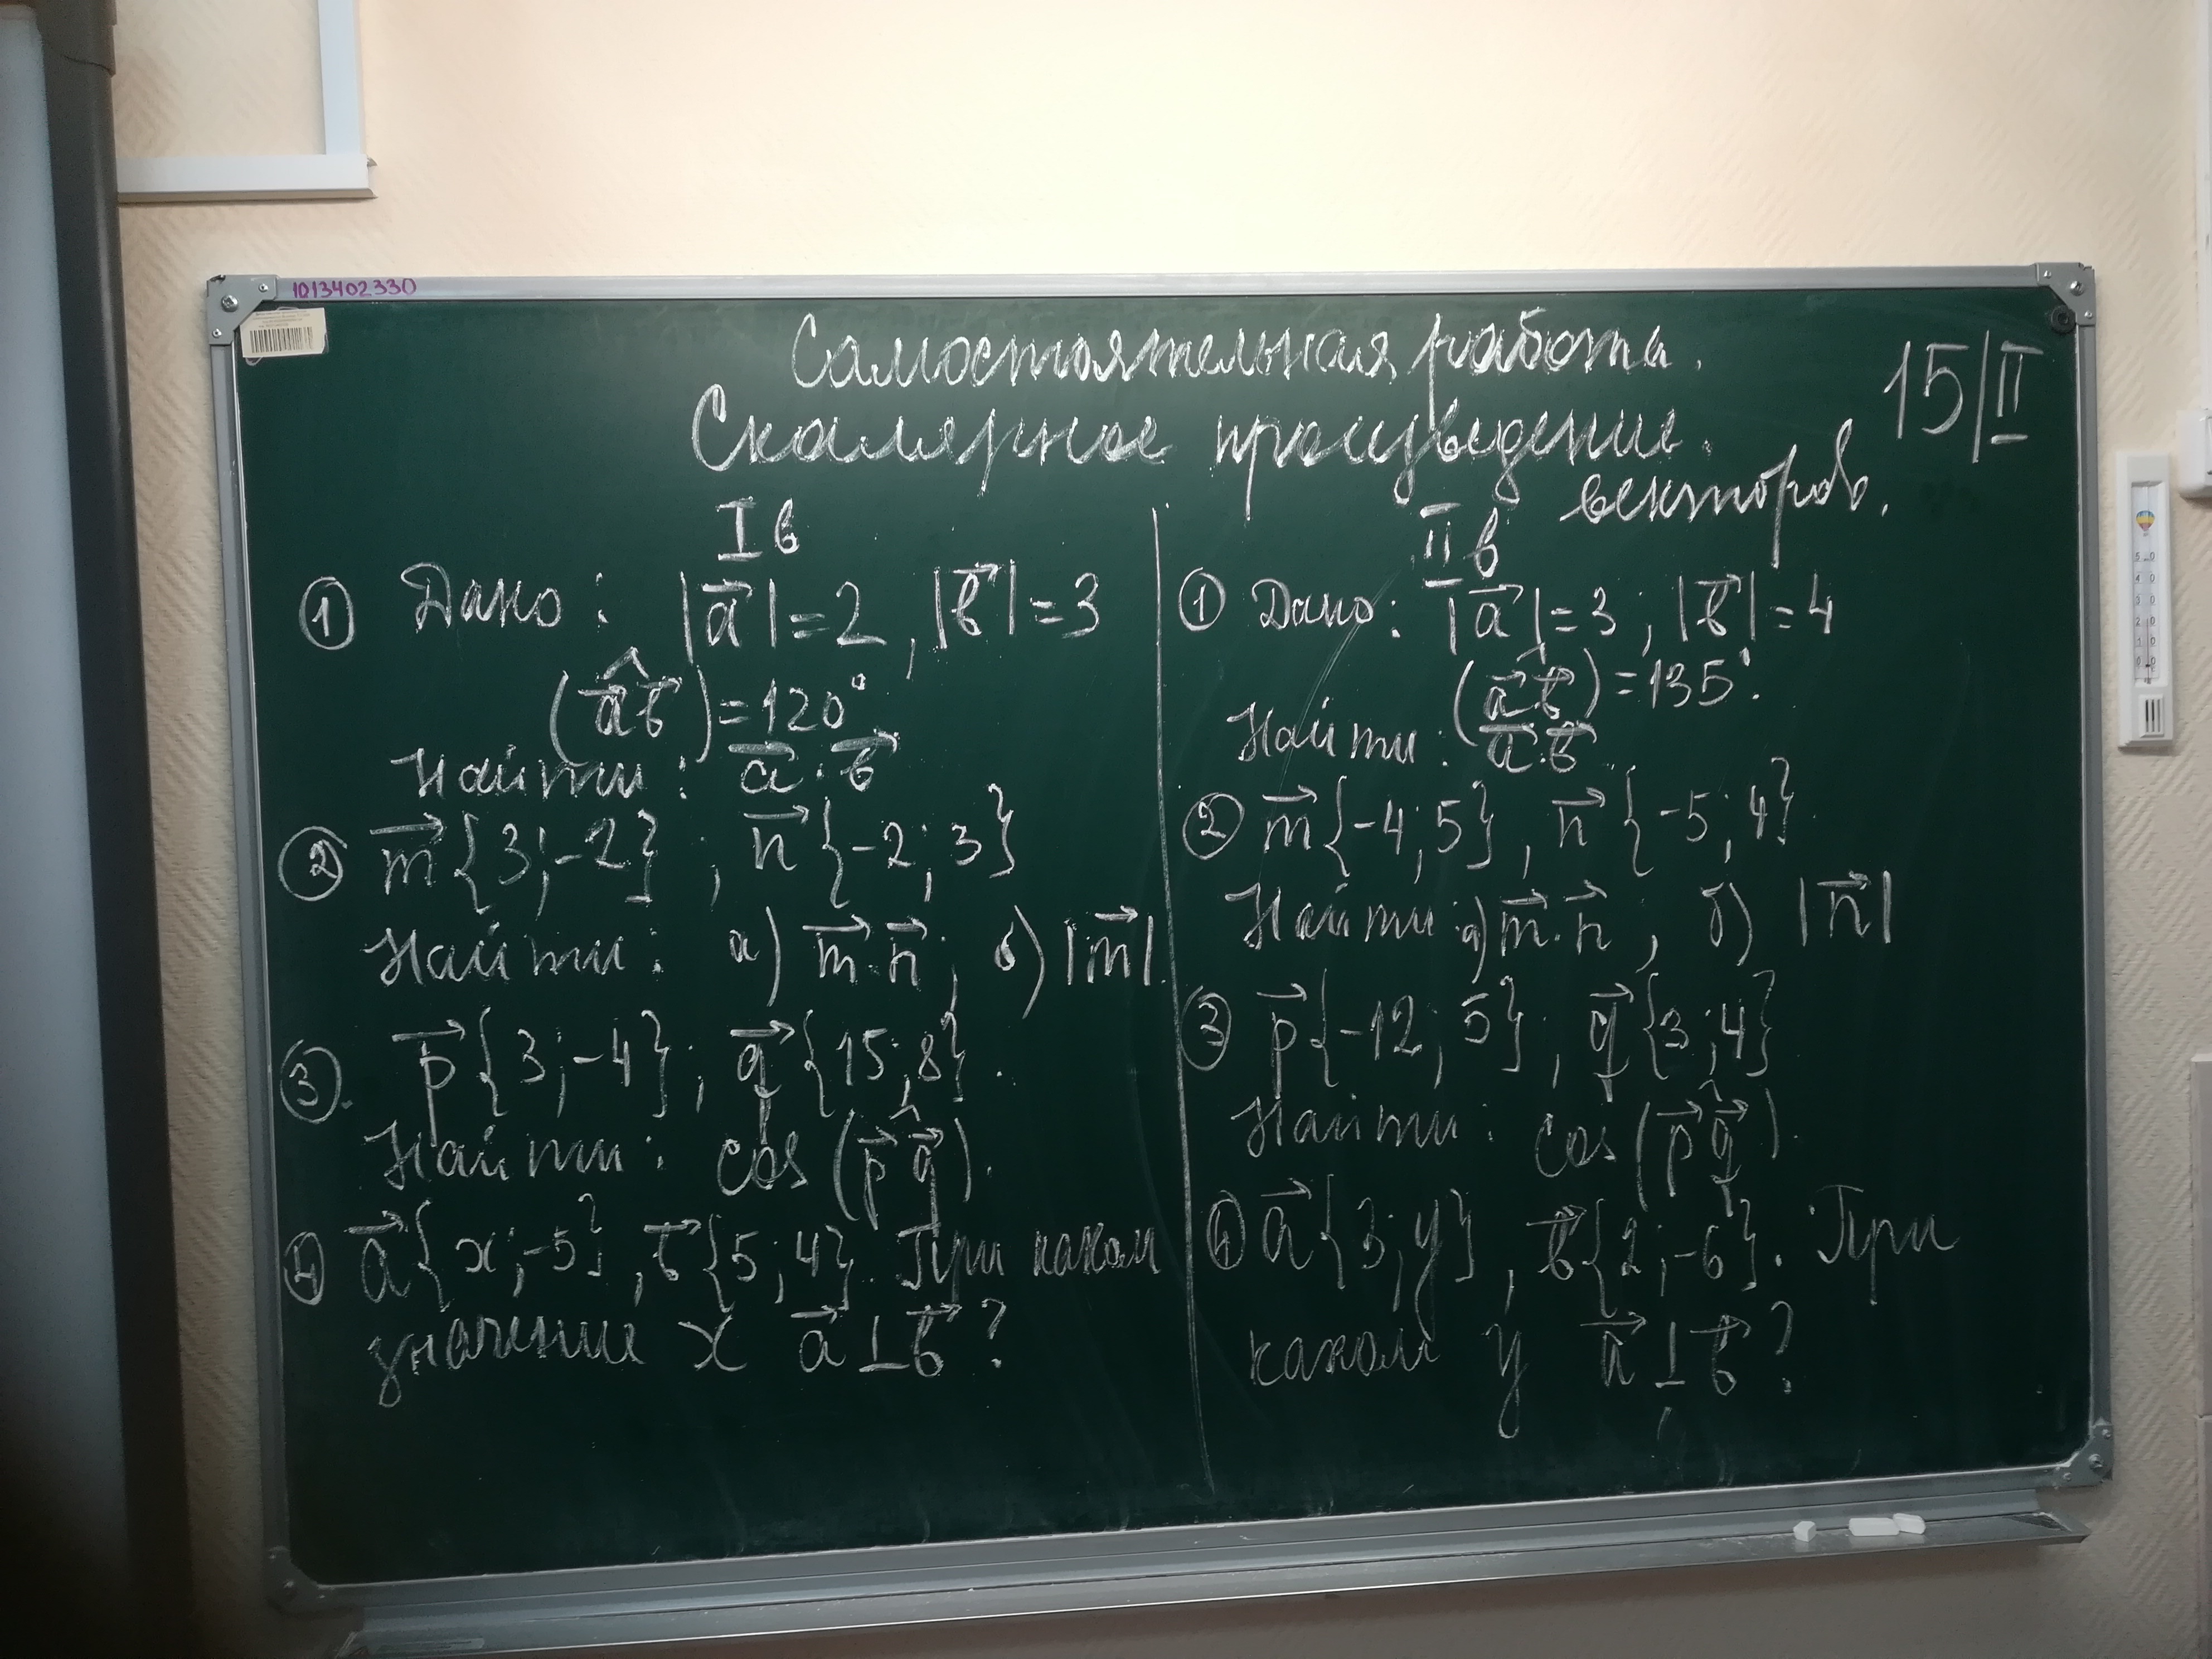 1013402330
Самостоятельная работа.
15/II
Скалярное произведение.
векторов.
I в
① Дано: |a⃗|=2, |b⃗|=3
(a⃗^b⃗)=120°
Найти: a⃗·b⃗
② m⃗{3;-2}; n⃗{-2;3}
Найти: а) m⃗·n⃗; б) |m⃗|.
③. p⃗{3;-4}; q⃗{15;8}.
Найти: cos(p⃗^q⃗).
④ a⃗{x;-5}, b⃗{5;4}. При каком
значение x a⃗⊥b⃗?
II в
① Дано: |a⃗|=3; |b⃗|=4
(a⃗^b⃗)=135°.
Найти: a⃗·b⃗
② m⃗{-4;5}, n⃗{-5;4}.
Найти: а) m⃗·n⃗, б) |n⃗|
③ p⃗{-12;5}, q⃗{3;4}
Найти: cos(p⃗^q⃗).
④ a⃗{3;y}, b⃗{2;-6}. При
каком y a⃗⊥b⃗?